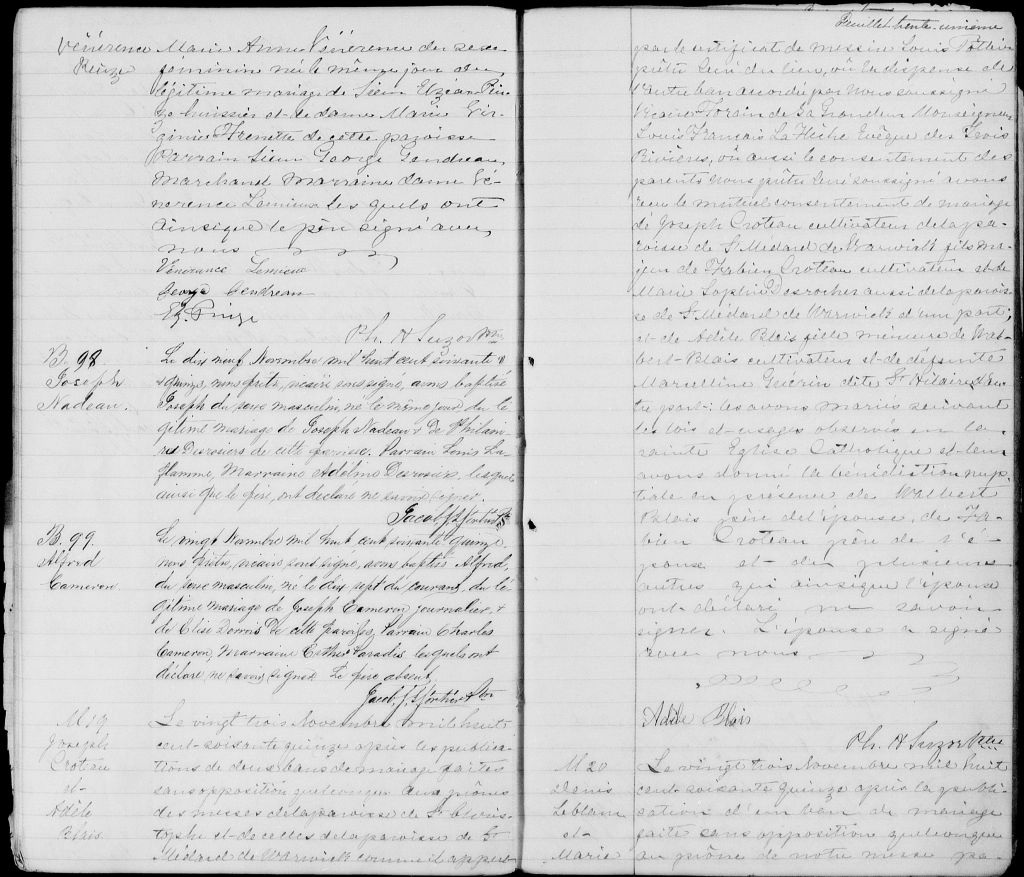 Vénérence Marie Anne Vénérence du sexe
Rinze féminin née le même jour du
légitime mariage de Sieur Elzéar Rin
ze huissier et de dame Marie Vir
ginie Frenette de cette paroisse
Parrain Sieur George Gendreau,
Marchand Marraine dame Vé-
nérence Lemieux les quels ont
ainsi que le père signé avec
nous
Vénérance Lemieux
George Gendreau
Ez. Prinze
Ph. H Suzor Ptre
B. 98 Le dix neuf Novembre mil huit cent soixante &
Joseph quinze, nous prêtre, vicaire sous signé, avons baptisé
Nadeau. Joseph du sexe masculin, né le même jour du lé
gitime mariage de Joseph Nadeau & De Philomè
ne Desrosiers de cette paroisse. Parrain Louis La-
flamme, Marraine Adéline Desrosiers, lesquels
ainsi que le père, ont déclaré ne savoir signer.
Jacob
B. 99. Le vingt Novembre mil huit cent soixante quinze
Alfred nous prêtre, vicaire sous signé, avons baptisé Alfred,
Cameron. du sexe masculin, né le dix sept du courant, du lé
gitime mariage de Joseph Cameron journalier, &
de Elise de cette paroisse, Parrain Charles
Cameron, Marraine Esther Paradis lesquels ont
déclaré ne savoir signer. Le père absent.
Jacob
M 19 Le vingt trois Novembre mil huit
Joseph cent soixante quinze après les publica-
Croteau tions de deux bans de mariage faites
et sans opposition quelconque aux prônes
Adèle des messes de la paroisse de St Chris-
Blais tophe et de celles de la paroisse de St
Médard de Warwick comme il appert
Feuillet trente-unième
par le certificat de messire Louis Pothier
prêtre curé du lieu, vû la dispense de
l'autre ban accordée par nous soussigné
Vicaire-Forain de Sa Grandeur Monseigneur
Louis François La Flèche Evêque des Trois
Rivières, vû aussi le consentement des
parents nous prêtre curé soussigné avons
reçu le mutuel consentement de mariage
de Joseph Croteau cultivateur de la pa-
roisse de St Médard de Warwick fils ma-
jeur de Fabien Croteau cultivateur et de
Marie Sophie Desrocher aussi de la parois-
se de St Médard de Warwick d'une part;
et de Adèle Blais fille mineure de Wal-
bert Blais cultivateur et de défunte
Marcelline Guérin dite St Hilaire d'au-
tre part: les avons mariés suivant
les lois et usages observés en la
sainte Eglise Catholique et leur
avons donné la bénédiction nup-
tiale en présence de Walbert
Blais père de l'épouse, de Fa-
bien Croteau père de l'é-
poux et de plusieurs
autres qui ainsi que l'époux
ont déclaré ne savoir
signer. L'épouse a signé
avec nous
Adèle Blais
Ph. H Suzor Ptre
M 20 Le vingt trois Novembre mil huit
Denis cent soixante quinze après la publi-
Leblanc cation d'un ban de mariage
et faite sans opposition quelconque
Marie au prône de notre messe pa-